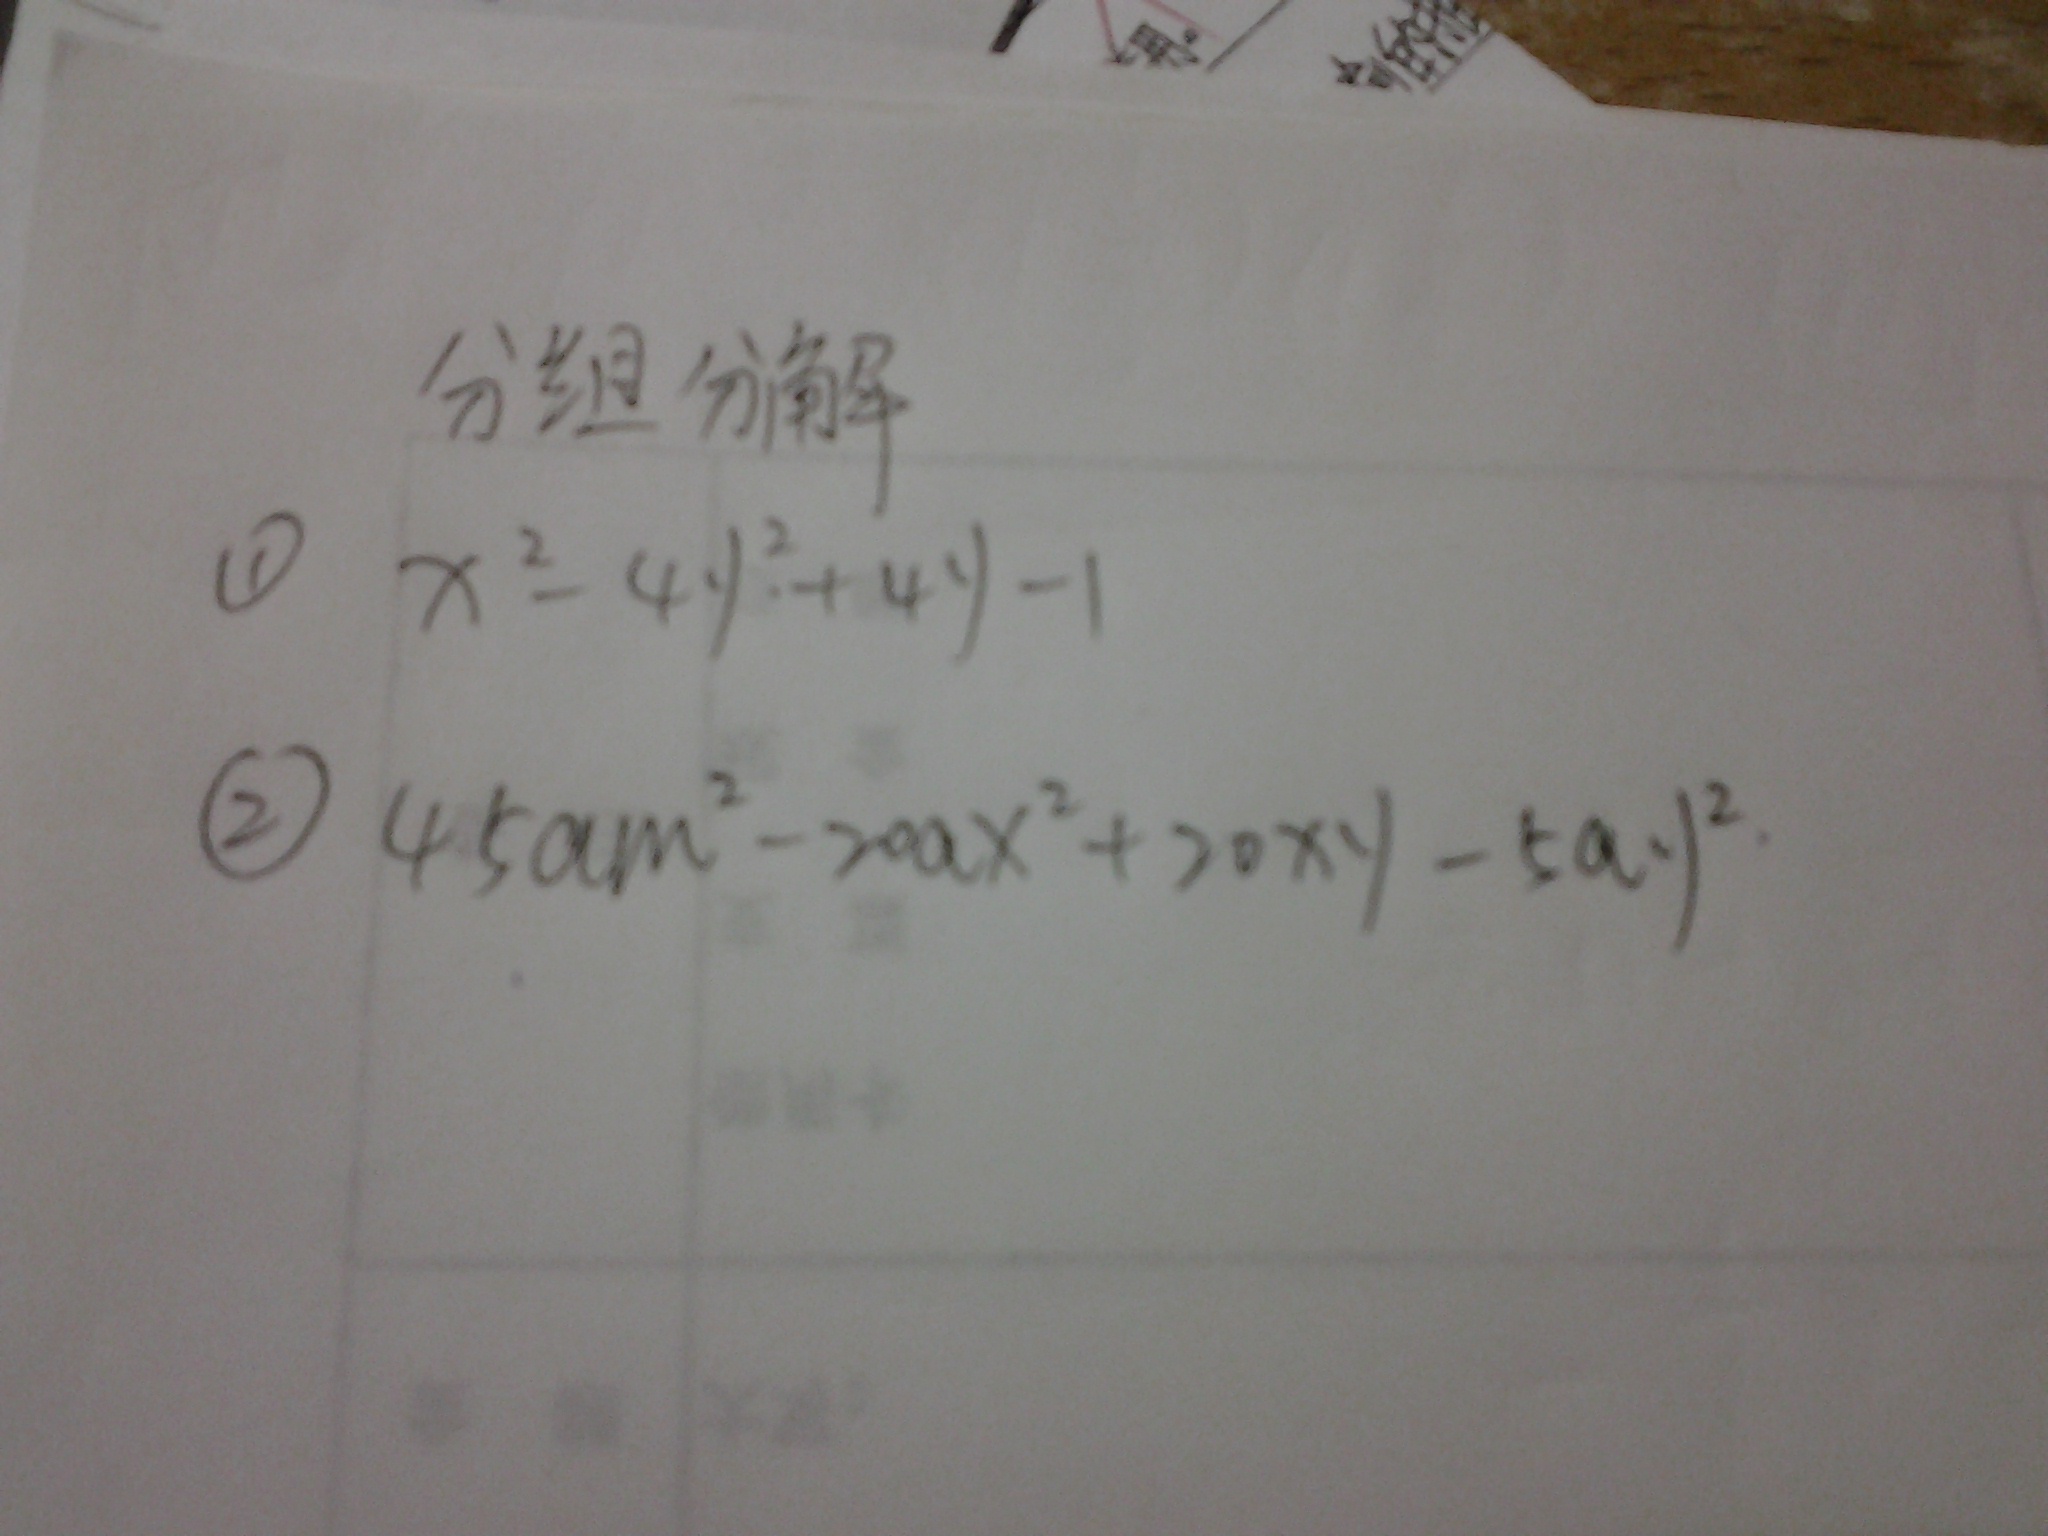 分组分解
① x²-4y²+4y-1
② 45am²-20ax²+20xy-5ay².